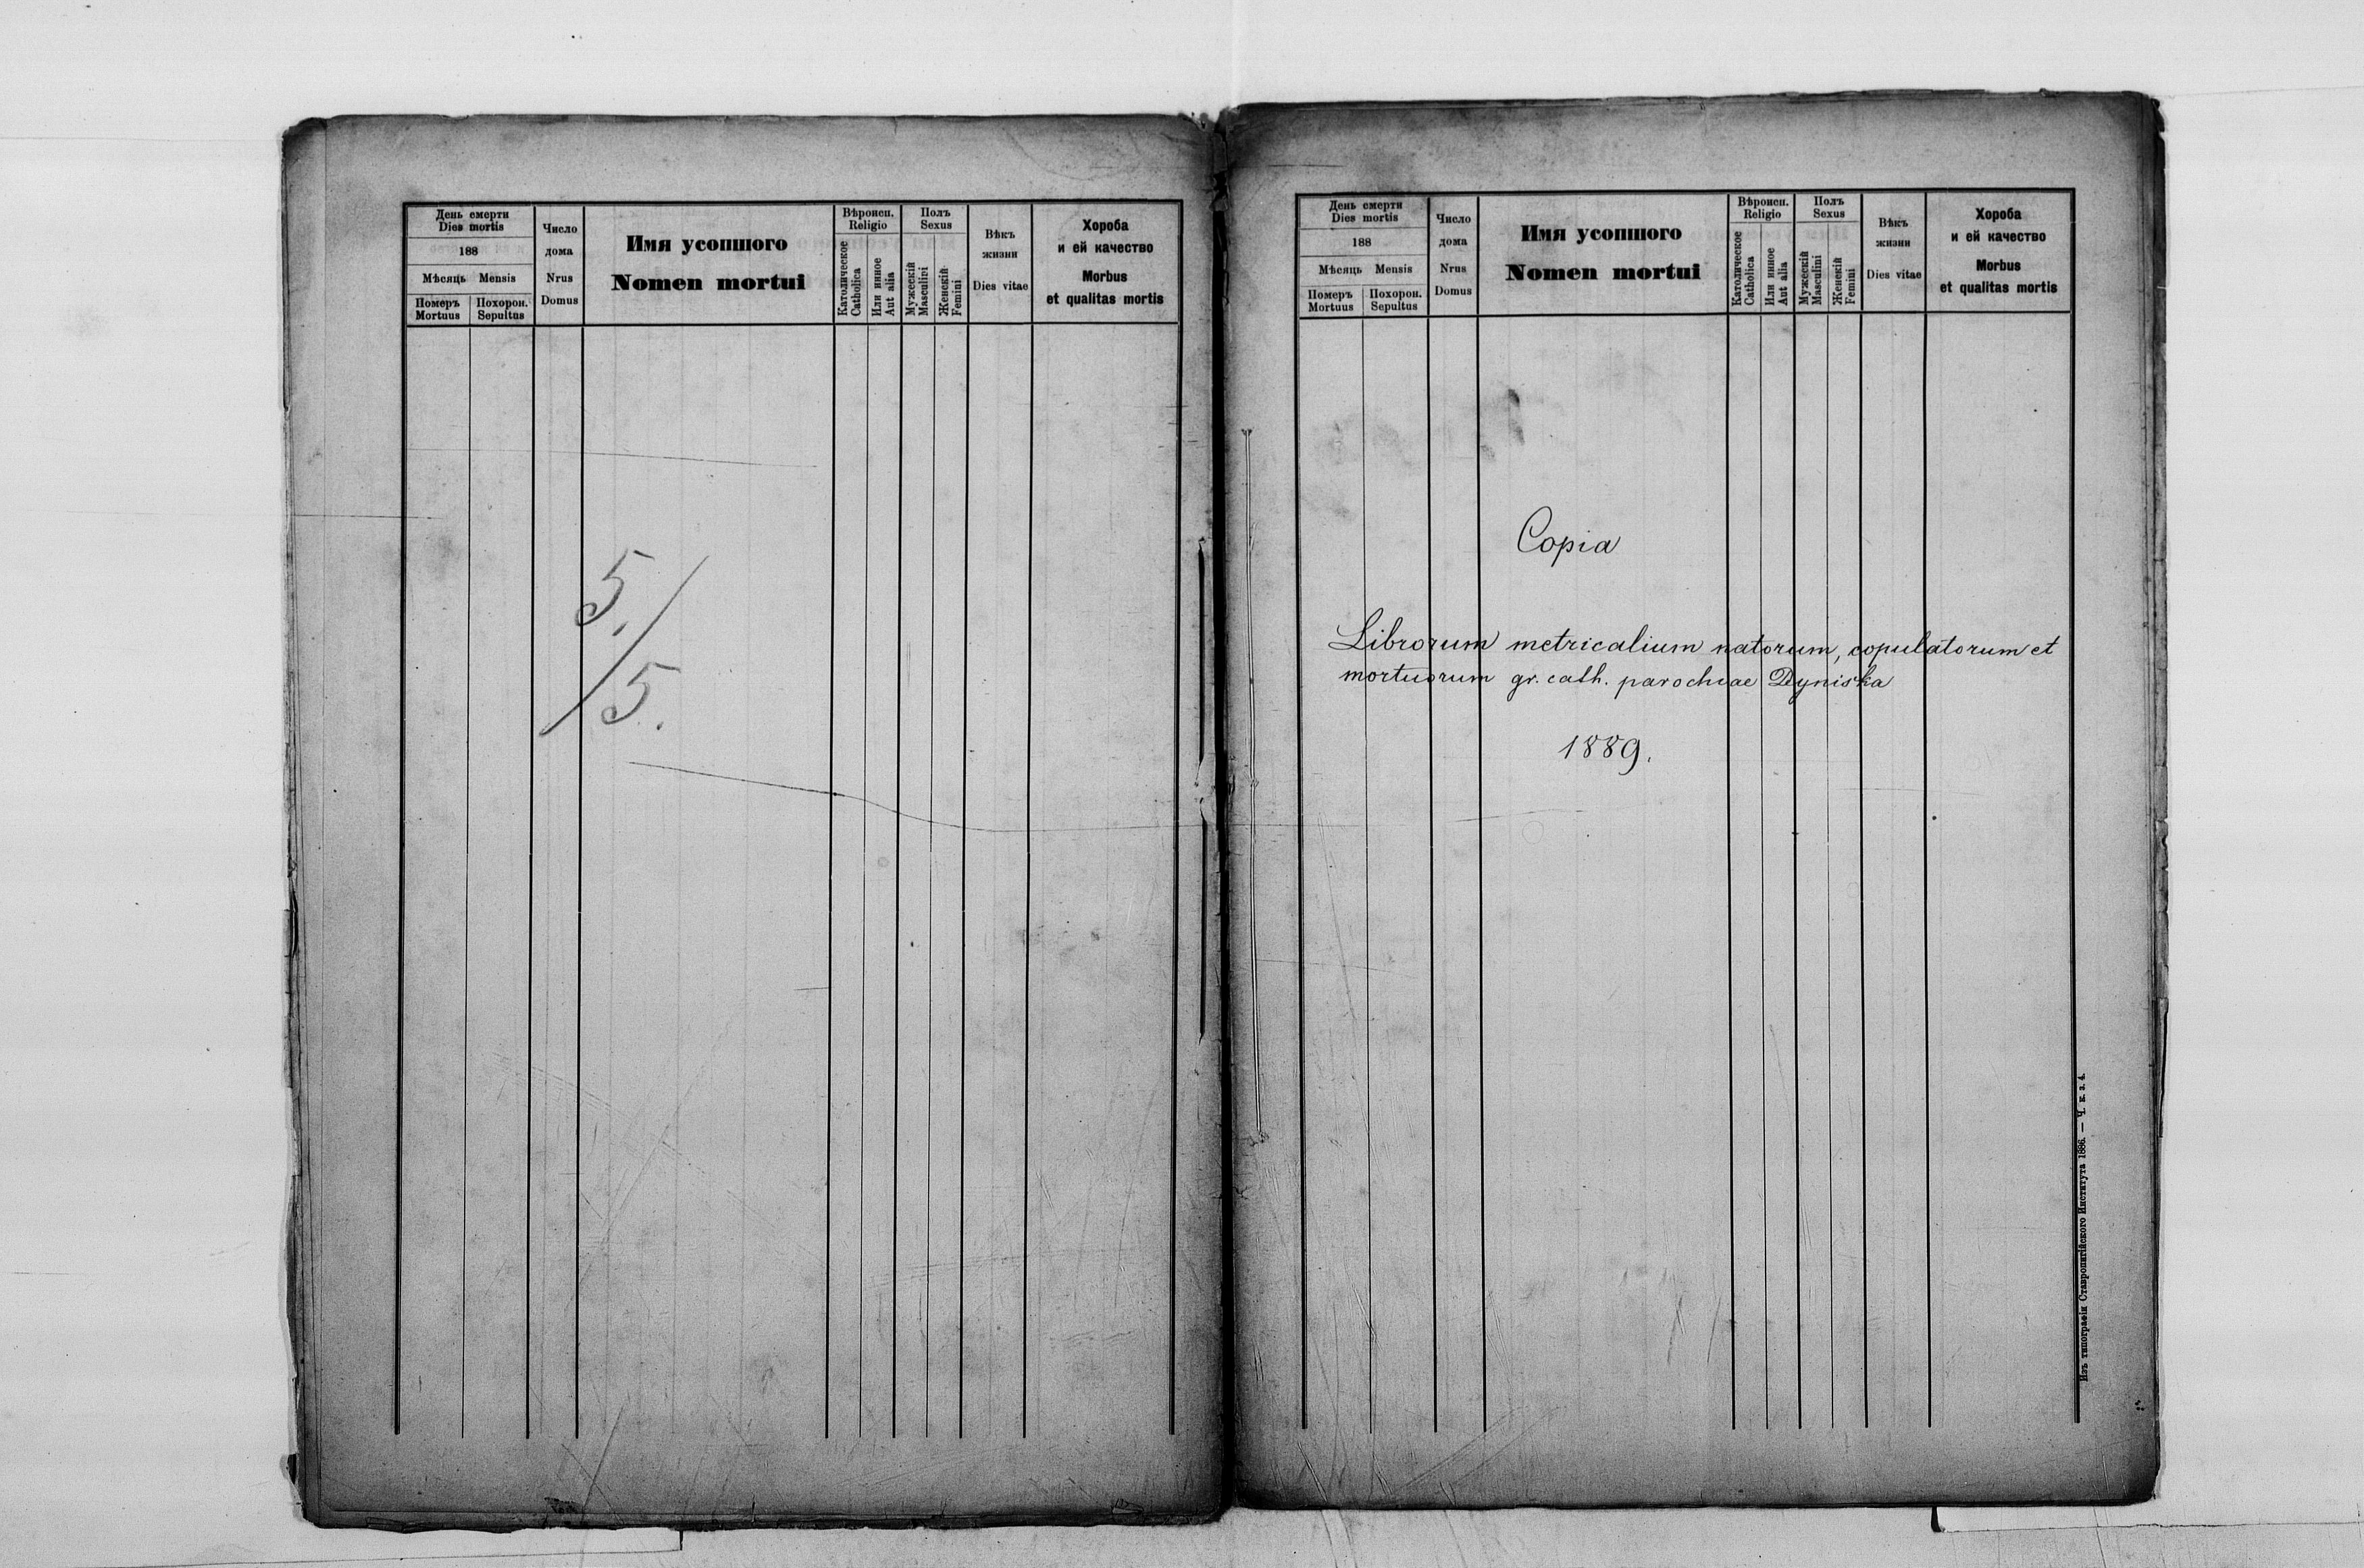 День смерти
Dies mortis
188
Мѣсяць Mensis
Померъ
Mortuus
Похорон.
Sepultus
Число
дома
Nrus
Domus
Имя усопшого
Nomen mortui
Вѣроисп.
Religio
Католическое
Catholica
Или инное
Aut alia
Полъ
Sexus
Мужескій
Masculini
Женскій
Femini
Вѣкъ
жизни
Dies vitae
Хороба
и ей качество
Morbus
et qualitas mortis
5.
5.
День смерти
Dies mortis
188
Мѣсяць Mensis
Померъ
Mortuus
Похорон.
Sepultus
Число
дома
Nrus
Domus
Имя усопшого
Nomen mortui
Вѣроисп.
Religio
Католическое
Catholica
Или инное
Aut alia
Полъ
Sexus
Мужескій
Masculini
Женскій
Femini
Вѣкъ
жизни
Dies vitae
Хороба
и ей качество
Morbus
et qualitas mortis
Copia
Librorum metricalium natorum, copulatorum et
mortuorum gr. cath. parochiae Dyniska
1889.
Изъ типографіи Ставропигійского Института 1886. — Ч. к. з. 4.